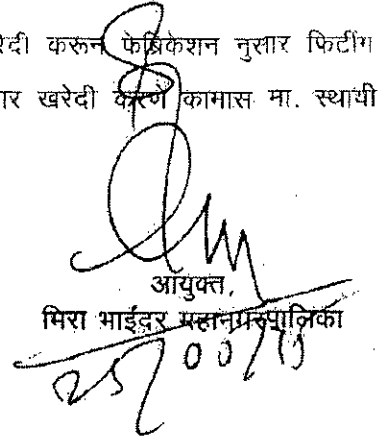 रेदी करून फेब्रिकेशन नुसार फिटींग
ार खरेदी करणे कामास मा. स्थायी
आयुक्त,
मिरा भाईंदर महानगरपालिका